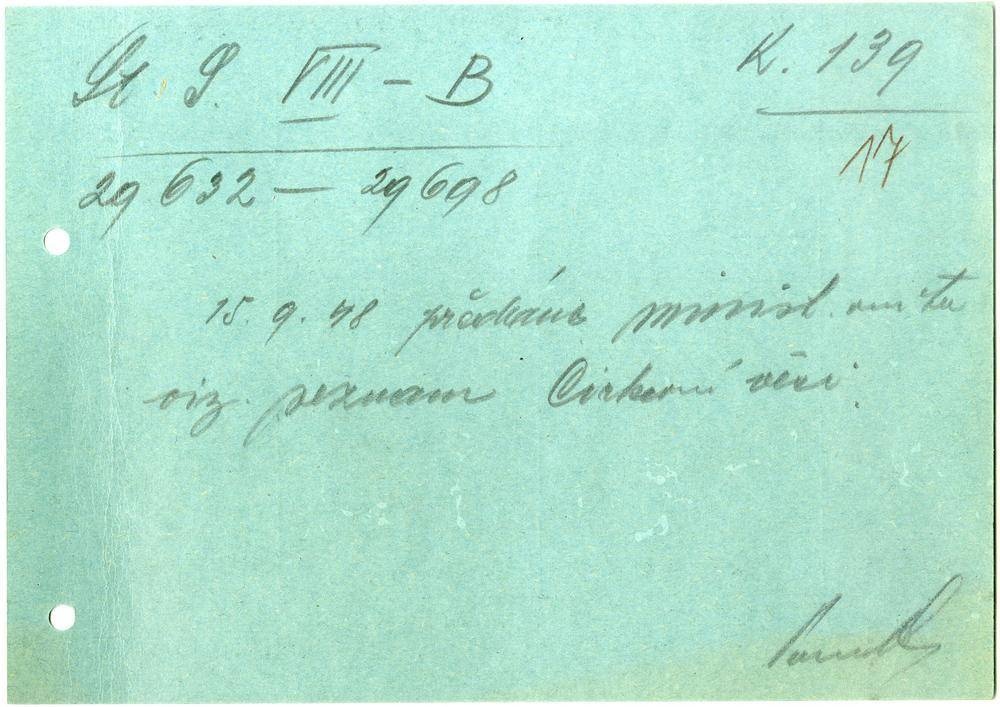 St. S. VIII - B
K. 139
17
29 632 — 29 698
15. 9. 48 předáno minist. vnitra
viz. seznam Církevní věci.